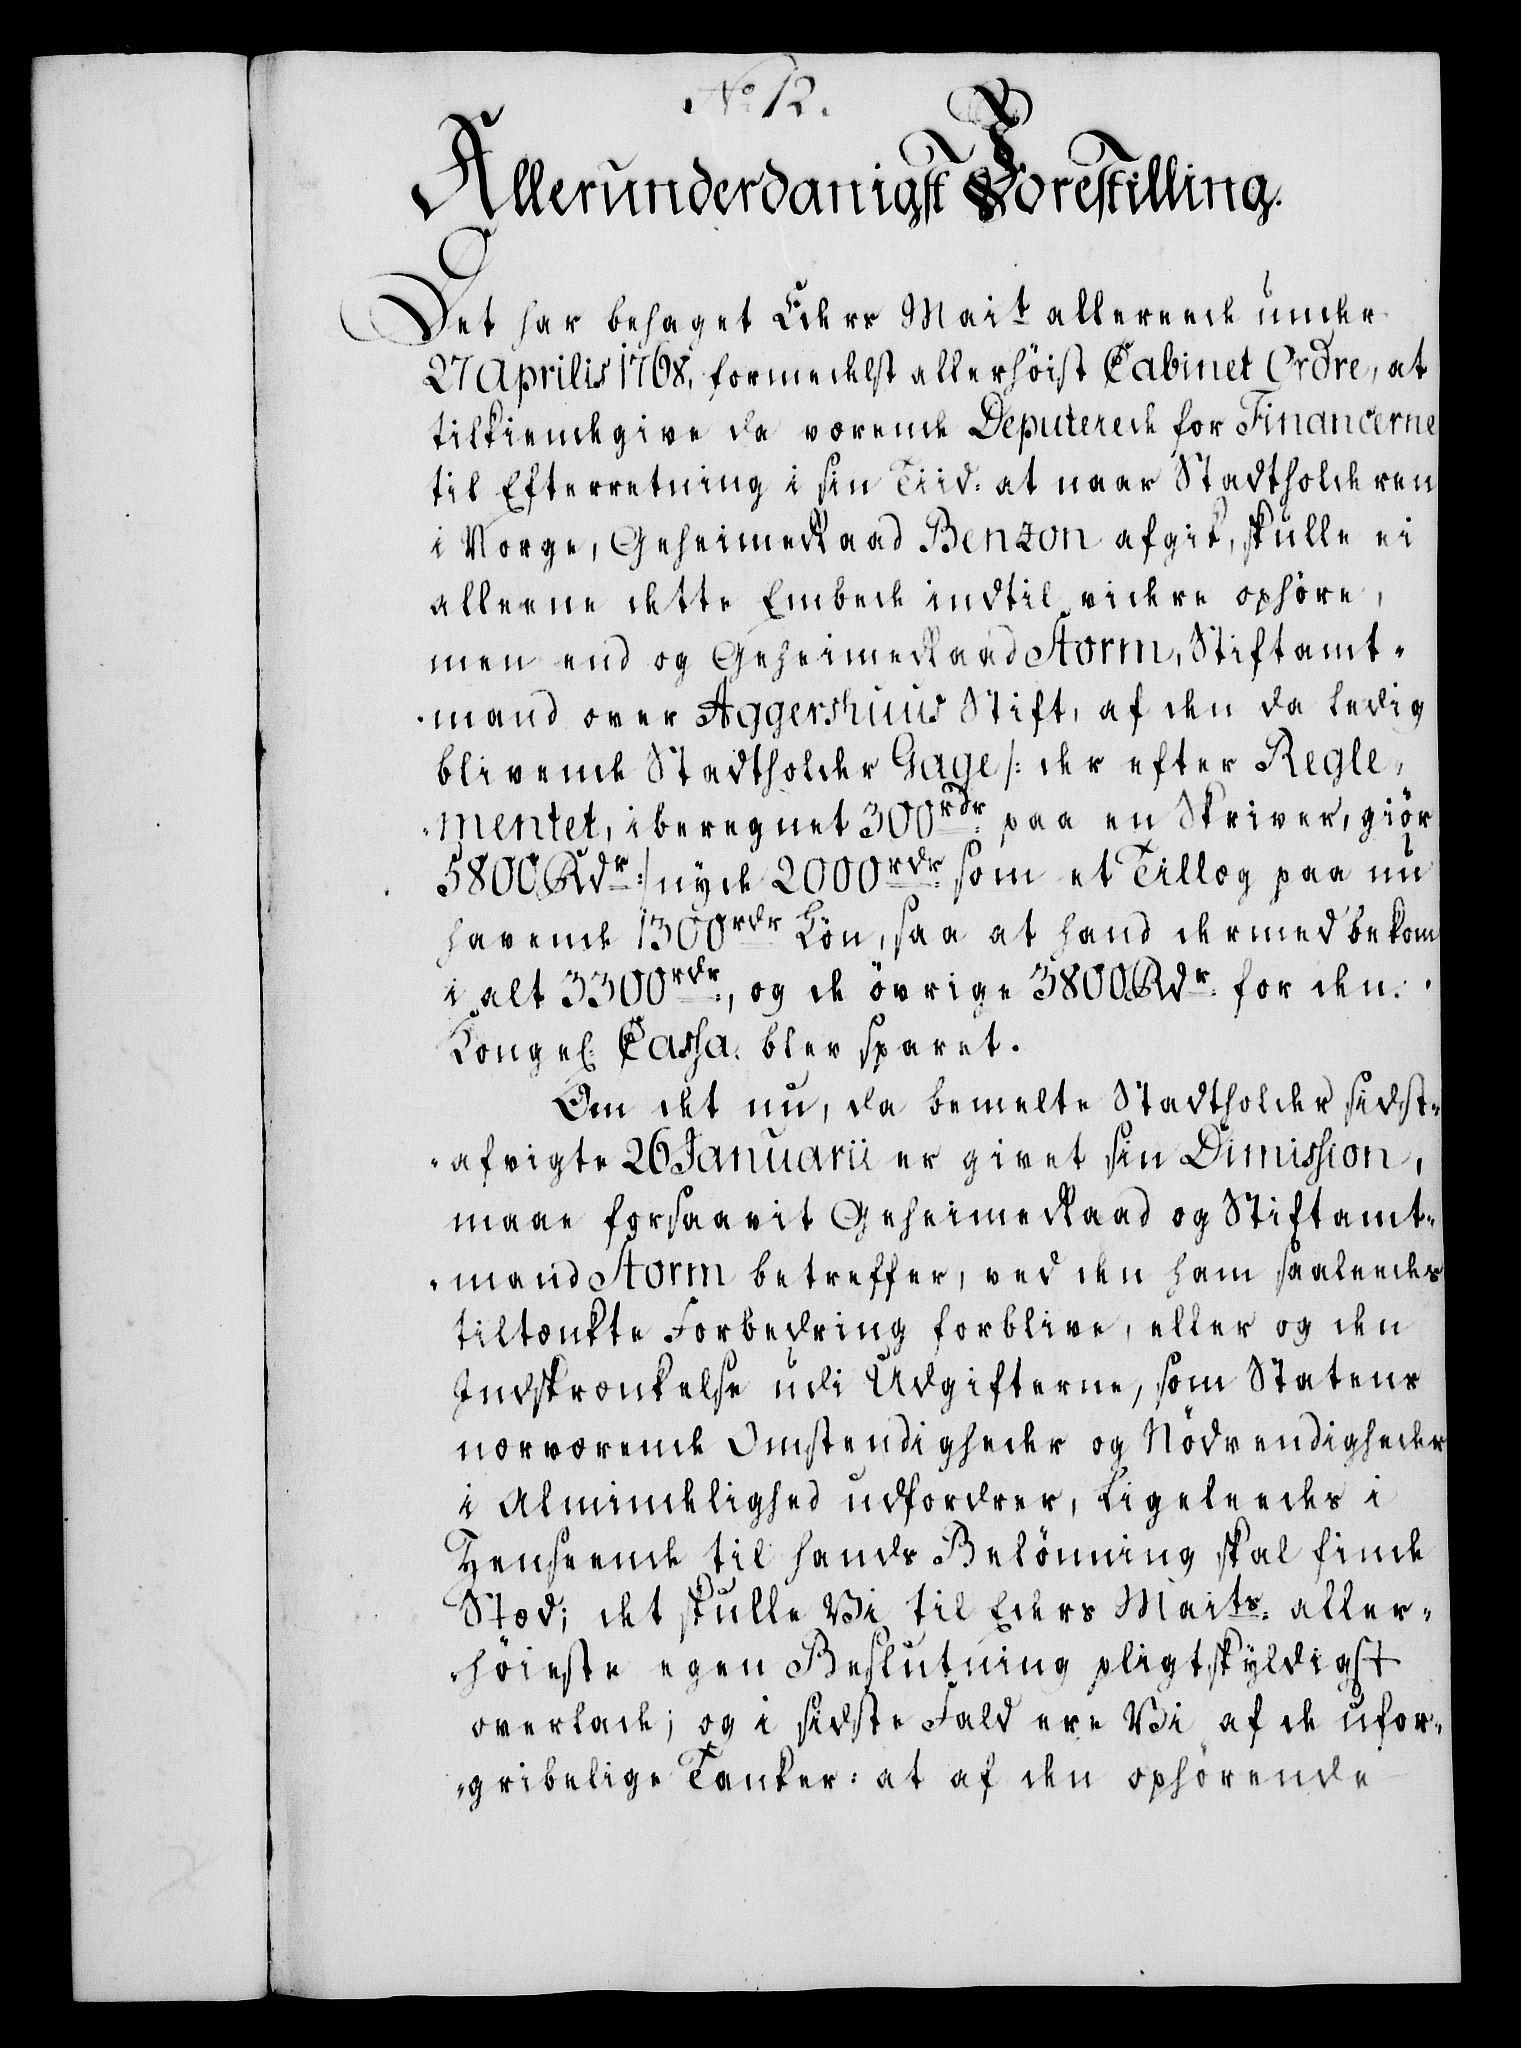 No 12.
Allerunderdanigst Forestilling.
Det har behaget Eders Mait allereede under
27 Aprilis 1768, formedelst allerhöist Cabinet Ordre, at
tilkiendegive da værende Deputerede for Financerne
til Efterretning i sin Tiid: at naar Stadtholderen
i Norge, Geheimeraad Benzon afgik, skulle ei
alleene dette Embede indtil videre ophöre,
men end og Geheimeraad Storm, Stiftamt-
-mand over Aggershuus Stift, af den da ledig
blivende Stadtholder Gage /: der efter Regle-
-mentet, iberegnet 300rdr. paa en Skriver, giör
5800 Rdr. :/ nyde 2000rdr. som et Tillæg paa nu
havende 1300rdr Lön, saa at hand dermed bekom
i alt 3300rdr., og de övrige 3800 Rdr. for den
Kongel. Cassa. blev sparet.
Om det nu, da bemelte Stadtholder sidst-
-afvigte 26 Januarii er givet sin Dimission,
maae forsaavit Geheimeraad og Stiftamt-
-mand Storm betreffer, ved den ham saaledes
tiltænkte Forbedring forblive, eller og den
Indskrænkelse udi Udgifterne, som Statens
nærværende Omstendigheder og Nödvendigheder
i Almindelighed udfordrer, ligeleedes i
Henseende til hands Belönning skal finde
Stæd; det skulle Vi til Eders Maits. aller-
-höieste egen Beslutning pligtskyldigst
overlade; og i sidste Fald ere Vi af de ufor-
-gribelige Tanker: at af den ophörende